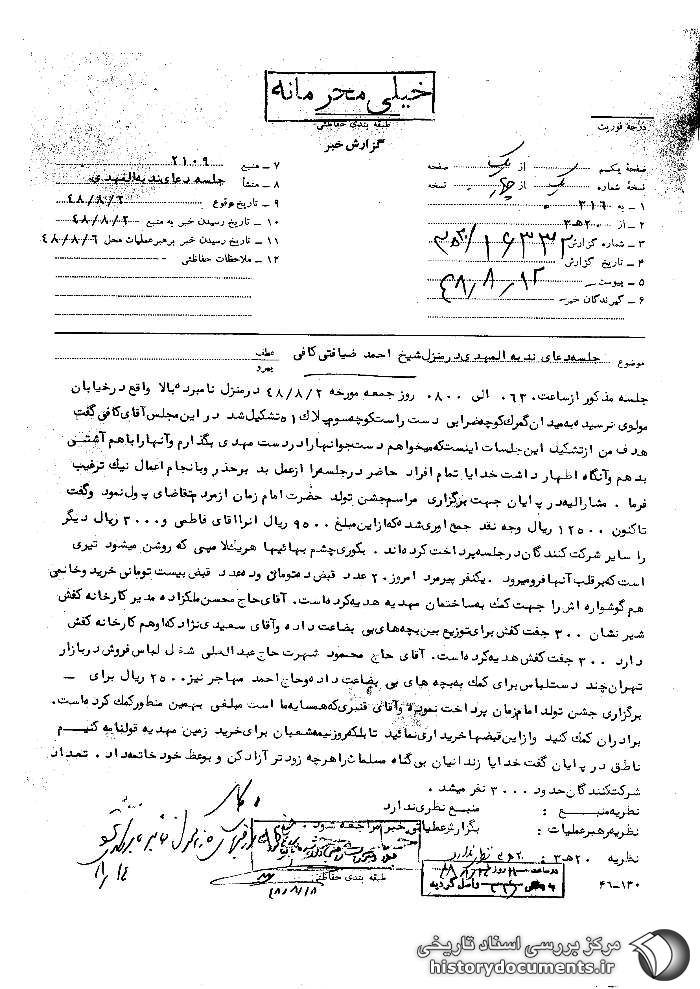 خیلی محرمانه
طبقه بندی حفاظتی
گزارش خبر
درجه فوریت
صفحه یکم از یک صفحه
نسخه شماره یک از چهار نسخه
۱ – به ۳۱۶
۲ – از ۲۰ هـ ۳
۳ – شماره گزارش ۱۶۳۳۲
۴ – تاریخ گزارش ۴۸/۸/۱۲
۵ – پیوست
۶ – گیرندگان خبر
۷ – منبع ۲۱۰۹
۸ – منشأ جلسه دعای ندبه المهدی
۹ – تاریخ وقوع ۴۸/۸/۲
۱۰ – تاریخ رسیدن خبر به منبع ۴۸/۸/۲
۱۱ – تاریخ رسیدن خبر برهبر عملیات محل ۴۸/۸/۶
۱۲ – ملاحظات حفاظتی
موضوع جلسه دعای ندبه المهدی در منزل شیخ احمد ضیافتی کافی
عطف
پیرو
جلسه مذکور از ساعت ۰۶۳۰ الی ۰۸۰۰ روز جمعه مورخه ۴۸/۸/۲ در منزل نامبرده بالا واقع در خیابان
مولوی نرسیده به میدان گمرک کوچه ضرابی دست راست کوچه سوم پلاک ۵۱ تشکیل شد در این مجلس آقای کافی گفت
هدف من از تشکیل این جلسات اینست که میخواهم دست جوانها را در دست مهدی بگذارم و آنها را با هم آشتی
بدهم و آنگاه اظهار داشت خدایا تمام افراد حاضر در جلسه را از عمل بد بر حذر و بانجام اعمال نیک ترغیب
فرما . مشارالیه در پایان جهت برگزاری مراسم جشن تولد حضرت امام زمان از مردم تقاضای پول نمود و گفت
تاکنون ۱۲۵۰۰ ریال وجه نقد جمع آوری شده که از این مبلغ ۹۵۰۰ ریال انرا آقای فاطمی و ۳۰۰۰ ریال دیگر
را سایر شرکت کنندگان در جلسه پرداخت کرده اند . بکوری چشم بهائیها هر یک لامپی که روشن میشود تیری
است که بر قلب آنها فرو میرود . یکنفر پیرمرد امروز ۲۰ عدد قبض ده تومانی و ده عدد قبض بیست تومانی خرید و خانمی
هم گوشواره اش را جهت کمک به ساختمان مهدیه هدیه کرده است. آقای حاج محسن ملکزاده مدیر کارخانه کفش
شیر نشان ۳۰۰ جفت کفش برای توزیع بین بچه های بی بضاعت داده و آقای سعیدی نژاد که او هم کارخانه کفش
دارد ۳۰۰ جفت کفش هدیه کرده است. آقای حاج محمود شهرت حاج عبدالعلی شغل لباس فروش در بازار
تهران چند دست لباس برای کمک به بچه های بی بضاعت داده و حاج احمد مهاجر نیز ۲۵۰۰ ریال برای –
برگزاری جشن تولد امام زمان پرداخت نموده و آقای قنبری که همسایه ما است مبلغی بهمین منظور کمک کرده است.
برادران کمک کنید و از این قبضها خریداری نمائید تا بلکه روز نیمه شعبان برای خرید زمین مهدیه قولنامه کنیم
ناطق در پایان گفت خدایا زندانیان بی گناه مسلمان را هر چه زودتر آزاد کن و بوعظ خود خاتمه داد . تعداد
شرکت کنندگان حدود ۳۰۰۰ نفر میشد .
نظریه منبع : منبع نظری ندارد
نظریه رهبر عملیات : بگزارش عملیاتی خبر مراجعه شود .
نظریه ۲۰ هـ ۳ :
طبقه بندی حفاظتی
۴۸/۸/۱۸
۸/۱۴
۴۶–۱۳۰
مرکز بررسی اسناد تاریخی
historydocuments.ir